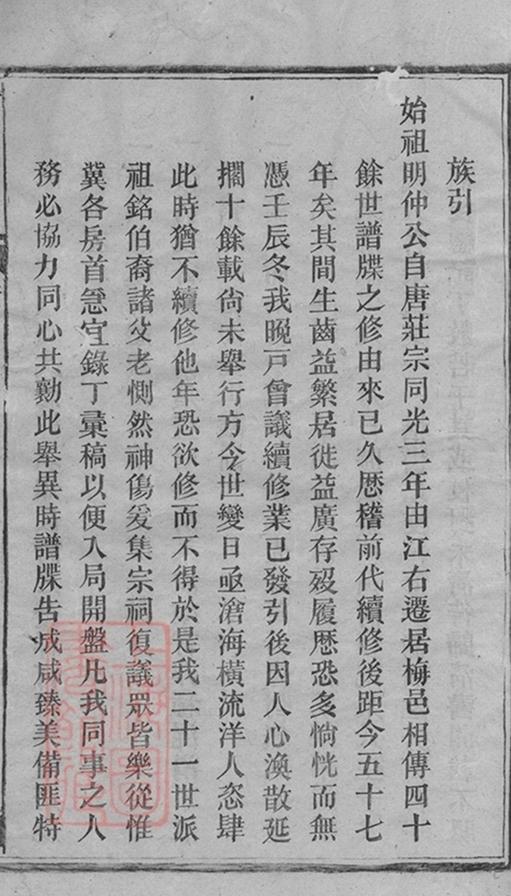 族引
始祖明仲公自唐莊宗同光三年由江右遷居梅邑相傳四十
餘世譜牒之修由來已久厯稽前代續修後距今五十七
年矣其間生齒益繁居徙益廣存歿履厯恐多惝恍而無
憑壬辰冬我晚戸曾議續修業已發引後因人心渙散延
擱十餘載尙未舉行方今世變日亟滄海橫流洋人恣肆
此時猶不續修他年恐欲修而不得於是我二十一世派
祖銘伯裔諸父老惻然神傷爰集宗祠復議眾皆樂從惟
冀各房首急宜錄丁彙稿以便入局開盤凡我同事之人
務必協力同心共勷此舉異時譜牒告成咸臻美備匪特